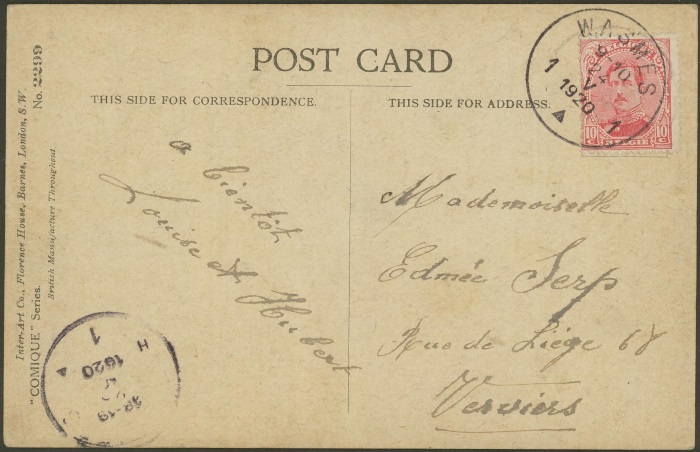 POST CARD
THIS SIDE FOR CORRESPONDENCE.
THIS SIDE FOR ADDRESS.
Inter-Art Co., Florence House, Barnes, London, S.W.
"COMIQUE" Series.
No. 2299
British Manufacture Throughout
a bientôt
Louise & Hubert
WASMES
1 1
9-10
V
1920
10 10
Mademoiselle
Edmée Serp
Rue de Liège 68
Verviers
18-19
1920
H
1